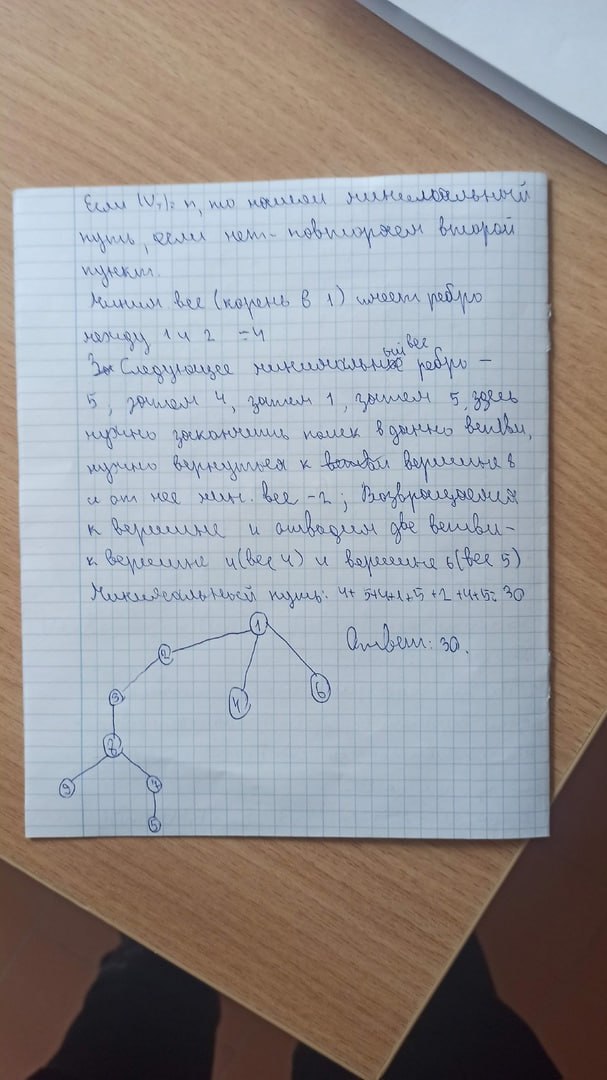 Если |Vт|= n, то нашли минимальный
путь, если нет - повторяем второй
пункт.
Миним. вес (корень в 1) имеет ребро
между 1 и 2 = 4
Следующее минимальный вес ребро –
5, затем 4, затем 1, затем 5, здесь
нужно закончить поиск в данно ветви,
нужно вернуться к вершине 8
и от нее мин. вес - 2; Возвращаемся
к вершине и отводим две ветви -
к вершине 4 (вес 4) и вершине 6 (вес 5)
Минимальный путь: 4+5+4+1+5+2+4+5= 30
Ответ: 30.
1
2
3
4
6
8
9
7
5